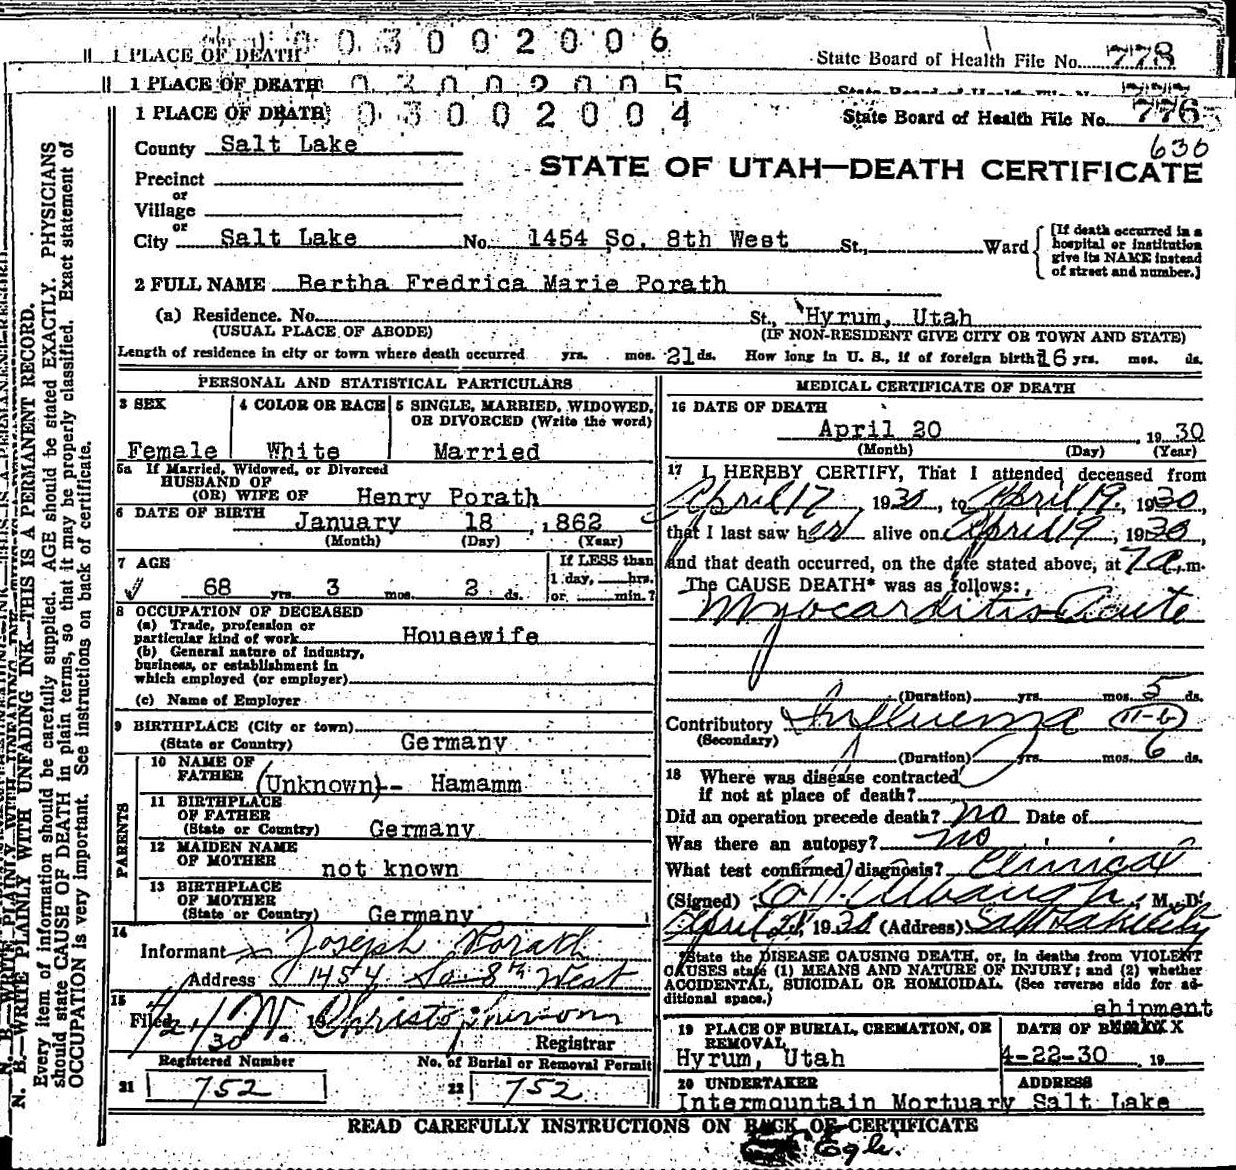 1 PLACE OF DEATH 0 3 0 0 2 0 0 6 State Board of Health File No. 778
1 PLACE OF DEATH 0 3 0 0 2 0 0 5
1 PLACE OF DEATH 0 3 0 0 2 0 0 4 State Board of Health File No. 776
630
County Salt Lake
STATE OF UTAH—DEATH CERTIFICATE
Precinct
or
Village
or
City Salt Lake No. 1454 So. 8th West St., Ward
[If death occurred in a
hospital or institution
give its NAME instead
of street and number.]
2 FULL NAME Bertha Fredrica Marie Porath
(a) Residence. No. St., Hyrum, Utah
(USUAL PLACE OF ABODE) (IF NON-RESIDENT GIVE CITY OR TOWN AND STATE)
Length of residence in city or town where death occurred yrs. mos. 21 ds. How long in U. S., if of foreign birth? 16 yrs. mos. ds.
PERSONAL AND STATISTICAL PARTICULARS
3 SEX 4 COLOR OR RACE 5 SINGLE, MARRIED, WIDOWED,
OR DIVORCED (Write the word)
Female White Married
5a If Married, Widowed, or Divorced
HUSBAND OF
(OR) WIFE OF Henry Porath
6 DATE OF BIRTH January 18 , 1862
(Month) (Day) (Year)
7 AGE If LESS than
1 day, hrs.
68 yrs. 3 mos. 2 ds. or min.?
8 OCCUPATION OF DECEASED
(a) Trade, profession or
particular kind of work Housewife
(b) General nature of industry,
business, or establishment in
which employed (or employer)
(c) Name of Employer
9 BIRTHPLACE (City or town)
(State or Country) Germany
PARENTS
10 NAME OF
FATHER (Unknown)-- Hamamm
11 BIRTHPLACE
OF FATHER
(State or Country) Germany
12 MAIDEN NAME
OF MOTHER not known
13 BIRTHPLACE
OF MOTHER
(State or Country) Germany
14
Informant Joseph Porath
Address 1454 So 8th West
15
Filed 4/21/30 19 W. Christopherson
Registrar
Registered Number No. of Burial or Removal Permit
21 752 22 752
MEDICAL CERTIFICATE OF DEATH
16 DATE OF DEATH
April 20 , 19 30
(Month) (Day) (Year)
17 I HEREBY CERTIFY, That I attended deceased from
April 17, 1930, to April 19, 1930,
that I last saw her alive on April 19, 1930,
and that death occurred, on the date stated above, at 7 a.m.
The CAUSE DEATH* was as follows:
Myocarditis Acute
(Duration) yrs. mos. 5 ds.
Contributory Influenza (11-b)
(Secondary)
(Duration) yrs. mos. 6 ds.
18 Where was disease contracted
if not at place of death?
Did an operation precede death? no Date of
Was there an autopsy? no
What test confirmed diagnosis? Clinical
(Signed) M. D.
April 21, 1930 (Address) Salt Lake City
*State the DISEASE CAUSING DEATH, or, in deaths from VIOLENT
CAUSES state (1) MEANS AND NATURE OF INJURY; and (2) whether
ACCIDENTAL, SUICIDAL OR HOMICIDAL. (See reverse side for ad-
ditional space.)
shipment
19 PLACE OF BURIAL, CREMATION, OR
REMOVAL
DATE OF BURIAL
Hyrum, Utah 4-22-30 , 19
20 UNDERTAKER ADDRESS
Intermountain Mortuary Salt Lake
READ CAREFULLY INSTRUCTIONS ON BACK OF CERTIFICATE
N. B.—WRITE PLAINLY WITH UNFADING INK—THIS IS A PERMANENT RECORD.
Every item of information should be carefully supplied. AGE should be stated EXACTLY. PHYSICIANS
should state CAUSE OF DEATH in plain terms, so that it may be properly classified. Exact statement of
OCCUPATION is very important. See instructions on back of certificate.